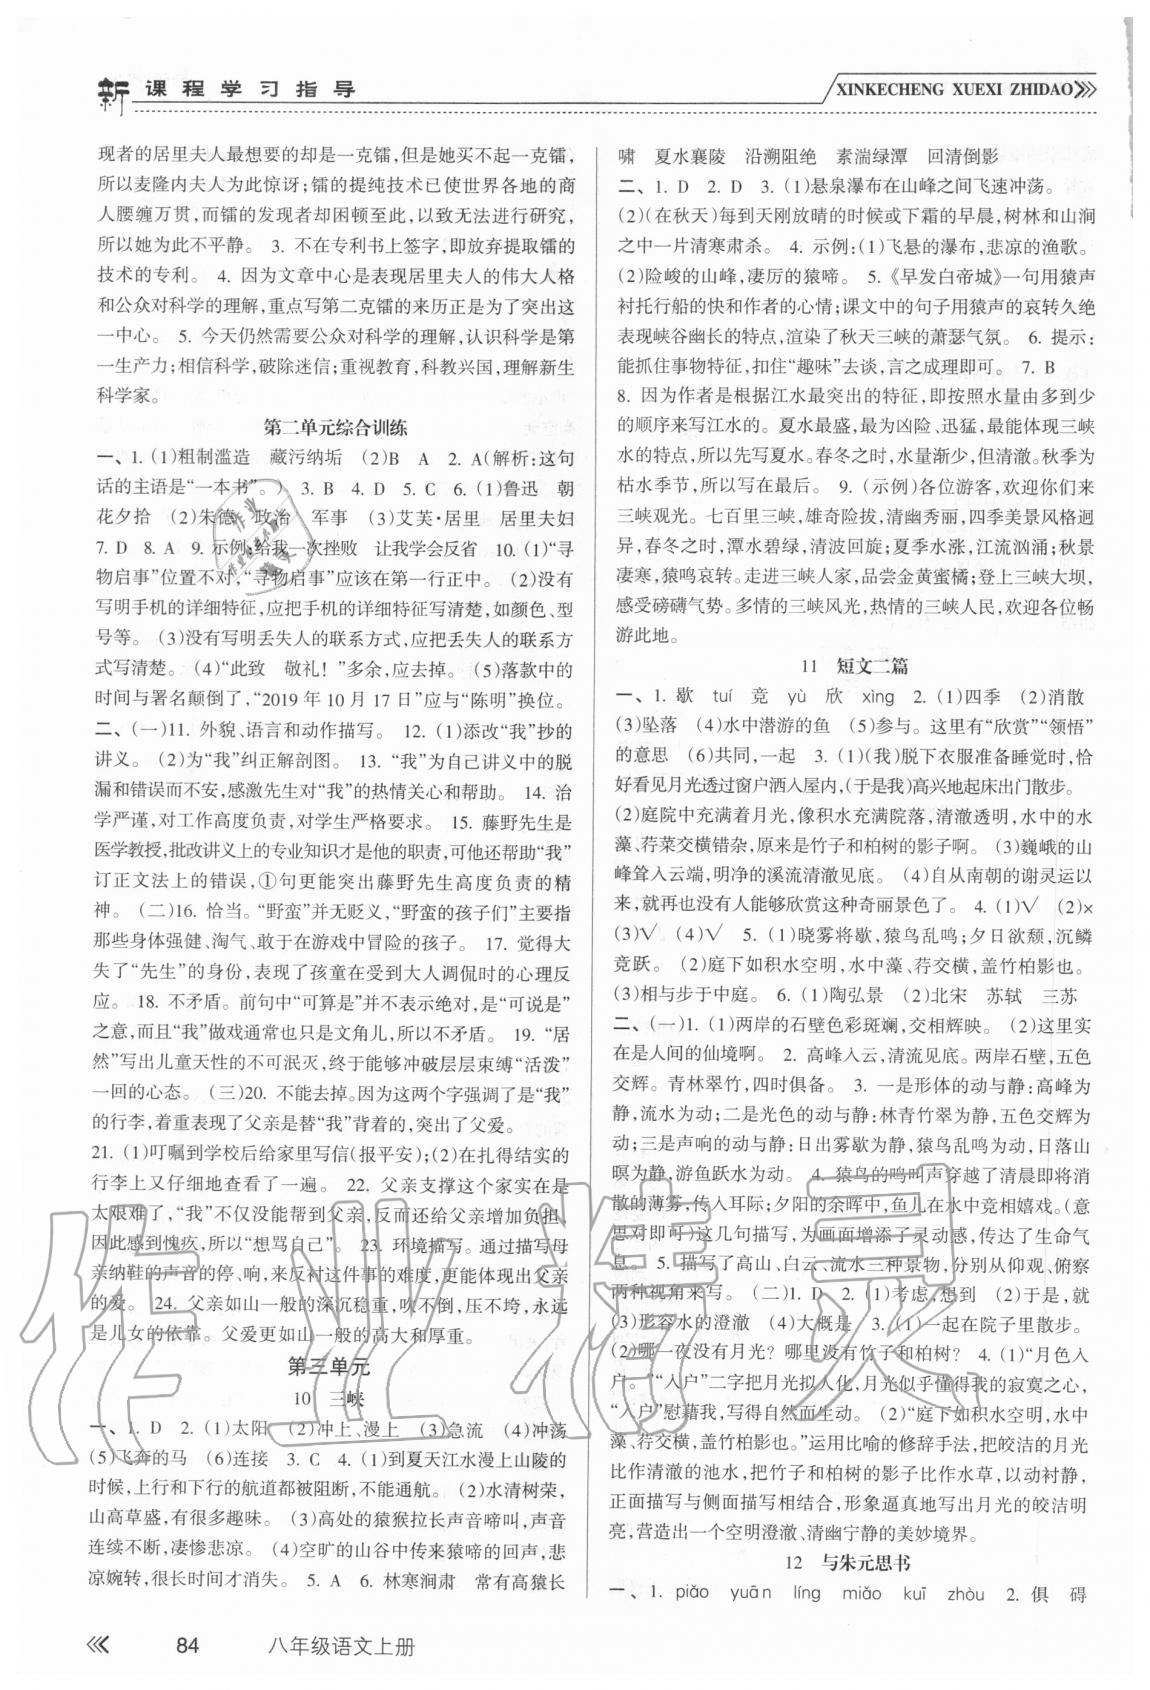 新课程学习指导
XINKECHENG XUEXI ZHIDAO
现者的居里夫人最想要的却是一克镭,但是她买不起一克镭,
所以麦隆内夫人为此惊讶;镭的提纯技术已使世界各地的商
人腰缠万贯,而镭的发现者却困顿至此,以致无法进行研究,
所以她为此不平静。 3. 不在专利书上签字,即放弃提取镭的
技术的专利。 4. 因为文章中心是表现居里夫人的伟大人格
和公众对科学的理解,重点写第二克镭的来历正是为了突出这
一中心。 5. 今天仍然需要公众对科学的理解,认识科学是第
一生产力;相信科学,破除迷信;重视教育,科教兴国,理解新生
科学家。
第二单元综合训练
一、1. (1)粗制滥造 藏污纳垢 (2)B A 2. A(解析:这句
话的主语是“一本书”。) 3. B 4. D 5. C 6. (1)鲁迅 朝
花夕拾 (2)朱德 政治 军事 (3)艾芙·居里 居里夫妇
7. D 8. A 9. 示例:给我一次挫败 让我学会反省 10. (1)“寻
物启事”位置不对,“寻物启事”应该在第一行正中。 (2)没有
写明手机的详细特征,应把手机的详细特征写清楚,如颜色、型
号等。 (3)没有写明丢失人的联系方式,应把丢失人的联系方
式写清楚。 (4)“此致 敬礼!”多余,应去掉。 (5)落款中的
时间与署名颠倒了,“2019 年 10 月 17 日”应与“陈明”换位。
二、(一)11. 外貌、语言和动作描写。 12. (1)添改“我”抄的
讲义。 (2)为“我”纠正解剖图。 13. “我”为自己讲义中的脱
漏和错误而不安,感激先生对“我”的热情关心和帮助。 14. 治
学严谨,对工作高度负责,对学生严格要求。 15. 藤野先生是
医学教授,批改讲义上的专业知识才是他的职责,可他还帮助“我”
订正文法上的错误,①句更能突出藤野先生高度负责的精
神。 (二)16. 恰当。“野蛮”并无贬义,“野蛮的孩子们”主要指
那些身体强健、淘气、敢于在游戏中冒险的孩子。 17. 觉得大
失了“先生”的身份,表现了孩童在受到大人调侃时的心理反
应。 18. 不矛盾。前句中“可算是”并不表示绝对,是“可说是”
之意,而且“我”做戏通常也只是文角儿,所以不矛盾。 19. “居
然”写出儿童天性的不可泯灭,终于能够冲破层层束缚“活泼”
一回的心态。 (三)20. 不能去掉。因为这两个字强调了是“我”
的行李,着重表现了父亲是替“我”背着的,突出了父爱。
21. (1)叮嘱到学校后给家里写信(报平安);(2)在扎得结实的
行李上又仔细地查看了一遍。 22. 父亲支撑这个家实在是
太艰难了,“我”不仅没能帮到父亲,反而还给父亲增加负担,
因此感到愧疚,所以“想骂自己”。 23. 环境描写。通过描写母
亲纳鞋的声音的停、响,来反衬这件事的难度,更能体现出父亲
的爱。 24. 父亲如山一般的深沉稳重,吹不倒,压不垮,永远
是儿女的依靠。父爱更如山一般的高大和厚重。
第三单元
10 三峡
一、1. D 2. (1)太阳 (2)冲上、漫上 (3)急流 (4)冲荡
(5)飞奔的马 (6)连接 3. C 4. (1)到夏天江水漫上山陵的
时候,上行和下行的航道都被阻断,不能通航。 (2)水清树荣,
山高草盛,有很多趣味。 (3)高处的猿猴拉长声音啼叫,声音
连续不断,凄惨悲凉。 (4)空旷的山谷中传来猿啼的回声,悲
凉婉转,很长时间才消失。 5. A 6. 林寒涧肃 常有高猿长
啸 夏水襄陵 沿溯阻绝 素湍绿潭 回清倒影
二、1. D 2. D 3. (1)悬泉瀑布在山峰之间飞速冲荡。
(2)(在秋天)每到天刚放晴的时候或下霜的早晨,树林和山涧
之中一片清寒肃杀。 4. 示例:(1)飞悬的瀑布,悲凉的渔歌。
(2)险峻的山峰,凄厉的猿啼。 5.《早发白帝城》一句用猿声
衬托行船的快和作者的心情;课文中的句子用猿声的哀转久绝
表现峡谷幽长的特点,渲染了秋天三峡的萧瑟气氛。 6. 提示:
能抓住事物特征,扣住“趣味”去谈,言之成理即可。 7. B
8. 因为作者是根据江水最突出的特征,即按照水量由多到少
的次序来写江水的。夏水最盛,最为凶险、迅猛,最能体现三峡
水的特点,所以先写夏水。春冬之时,水少下来,但清澈。秋季为
枯水季节,所以最后写秋水。 9. (示例)各位游客,欢迎你们来
三峡观光。七百里三峡,雄奇险拔,清幽秀丽,四季美景风格迥
异,春冬之时,潭水碧绿,清波回旋;夏季水涨,江流汹涌;秋景
凄寒,猿鸣哀转。走进三峡人家,品尝金黄蜜橘;登上三峡大坝,
感受磅礴气势。多情的三峡风光,热情的三峡人民,欢迎各位畅
游此地。
11 短文二篇
一、1. 歇 tuí 竞 yù 欣 xìng 2. (1)四季 (2)消散
(3)坠落 (4)水中潜游的鱼 (5)参与。这里有“欣赏”“领悟”
的意思 (6)共同,一起 3. (1)(我)脱下衣服准备睡觉时,恰
好看见月光透过窗户洒入屋内,(于是我)高兴地起床出门散步。
(2)庭院中充满着月光,像积水充满院落,清澈透明,水中的水
藻、荇菜交横错杂,原来是竹子和柏树的影子啊。 (3)巍峨的山
峰耸入云端,明净的溪流清澈见底。 (4)自从南朝的谢灵运以
来,就再也没有人能够欣赏这种奇丽景色了。 4. (1)√ (2)×
(3)√ (4)√ 5. (1)晓雾将歇,猿鸟乱鸣;夕日欲颓,沉鳞
竞跃。 (2)庭下如积水空明,水中藻、荇交横,盖竹柏影也。
(3)相与步于中庭。 6. (1)陶弘景 (2)北宋 苏轼 三苏
二、(一)1. (1)两岸的石壁色彩斑斓,交相辉映。 (2)这里实
在是人间的仙境啊。 2. 高峰入云,清流见底。两岸石壁,五色
交辉。青林翠竹,四时俱备。 3. 一是形体的动与静:高峰为
静,流水为动;二是光色的动与静:林青竹翠为静,五色交辉为
动;三是声响的动与静:日出雾歇为静,猿鸟乱鸣为动,日落山
暝为静,游鱼跃水为动。 4. 猿鸟的鸣叫声穿越了清晨即将消
散的薄雾,传入耳际;夕阳的余晖中,鱼儿在水中竞相嬉戏。(意
思对即可)这几句描写,为画面增添了灵动感,传达了生命气
息。 5. 描写了高山、白云、流水三种景物,分别从仰观、俯察
两种视角来写。 (二)1. D 2. (1)考虑,想到 (2)于是,就
(3)形容水的澄澈 (4)大概是 3. (1)一起在院子里散步。
(2)哪一夜没有月光?哪里没有竹子和柏树? 4. (1)“月色入
户。”“入户”二字把月光拟人化,月光似乎懂得他的寂寞之心,
“入户”慰藉我,写得自然而生动。 (2)“庭下如积水空明,水中
藻、荇交横,盖竹柏影也。”运用比喻的修辞手法,把皎洁的月光
比作清澈的池水,把竹子和柏树的影子比作水草,以动衬静,
正面描写与侧面描写相结合,形象逼真地写出月光的皎洁明
亮,营造出一个空明澄澈、清幽宁静的美妙境界。
12 与朱元思书
一、1. piǎo yuān líng miǎo kuī zhòu 2. 俱 碍
84 八年级语文上册
作业精灵